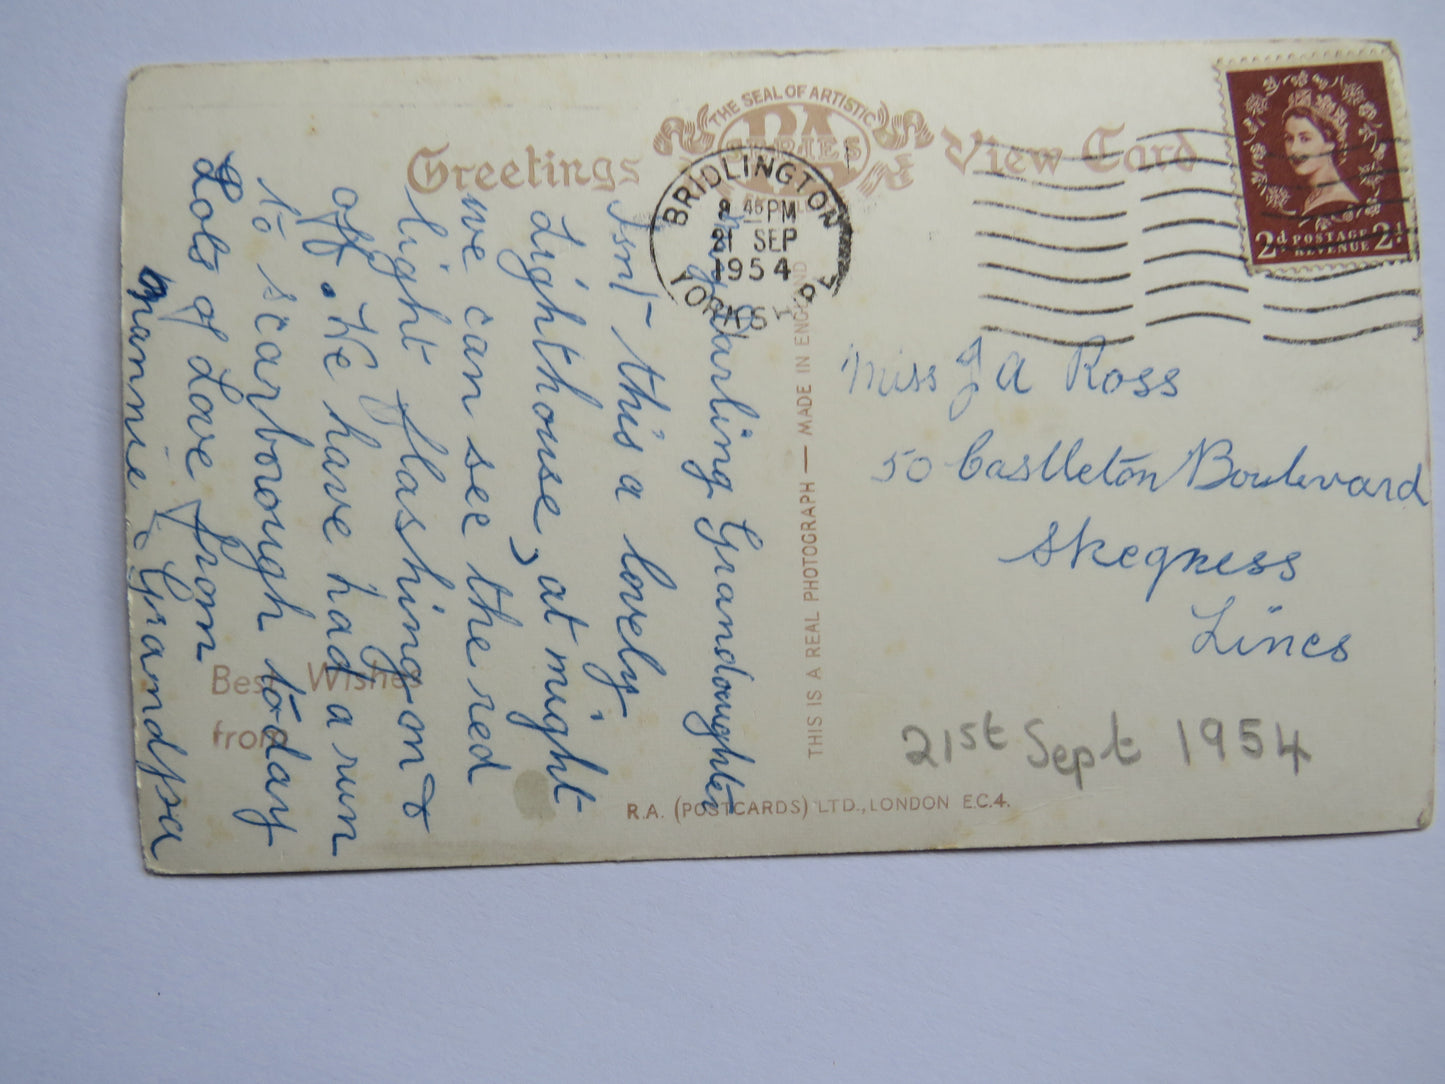 Greetings
THE SEAL OF ARTISTIC
RA
SERIES
View Card
BRIDLINGTON
45 PM
21 SEP
1954
YORKSHIRE
2d POSTAGE 2d
REVENUE
My Darling Grandoughter
Isnt this a lovely
Lighthouse, at night
we can see the red
light flashing on &
off. We have had a run
to scarborough to-day
Lots of Love from
Nannie & Grandpa
Best Wishes
from
THIS IS A REAL PHOTOGRAPH — MADE IN ENGLAND
Miss J A Ross
50 Castleton Boulevard
Skegness
Lincs
21st Sept 1954
R.A. (POSTCARDS) LTD., LONDON E.C.4.